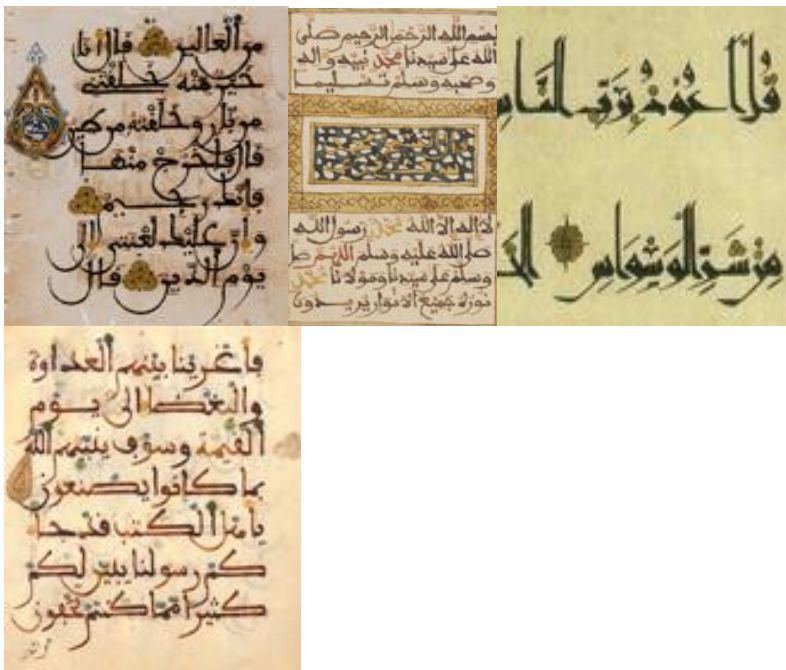 من العالين قال انا
خير منه خلقتني
من نار وخلقته من طين
قال فاخرج منها
فانك رجيم
وان عليك لعنتي الى
يوم الدين قال
بسم الله الرحمن الرحيم صلى
الله على سيدنا محمد نبيه واله
وصحبه وسلم تسليما
لا اله الا الله محمد رسول الله
صلى الله عليه وسلم اللهم صل
وسلم على سيدنا ومولانا محمد
نوره جميع الانوار
قل اعوذ برب الناس
من شر الوسواس الخ
فاغرينا بينهم العداوة
والبغضا الى يوم
القيمة وسوف ينبئهم الله
بما كانوا يصنعون
يا هل الكتب قد جا
كم رسولنا يبين لكم
كثيرا مما كنتم تخفون